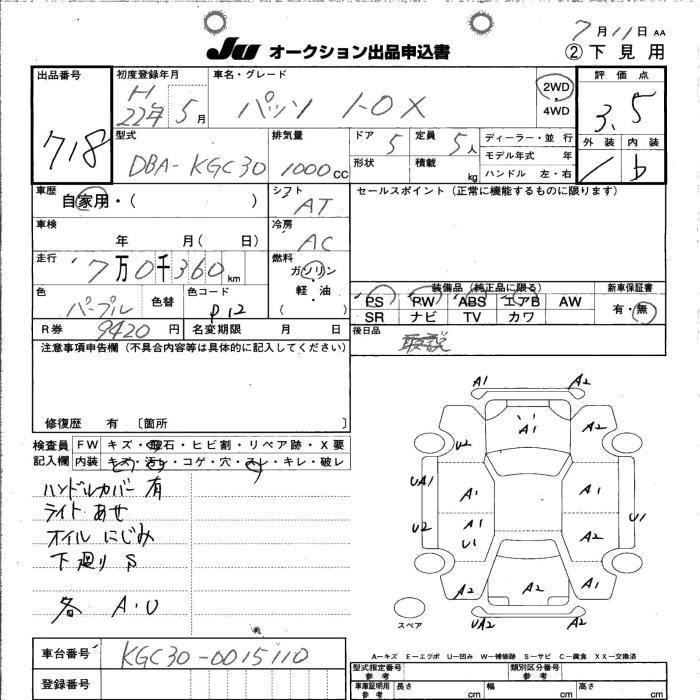 7月11日 AA
JU オークション出品申込書 ②下見用
出品番号 初度登録年月 車名・グレード 評価点
718 H22年5月 パッソ 1.0X 2WD 4WD 3.5
外装 内装
型式 排気量 ドア 5 定員 5人 ディーラー・並行
DBA-KGC30 1000cc 形状 積載 kg モデル年式 年
ハンドル 左・右
車歴 自家用・( ) シフト AT セールスポイント(正常に機能するものに限ります)
車検 年 月( 日) 冷房 AC
走行 7万0千360km 燃料 ガソリン 軽・油 ( )
装備品(純正品に限る) 新車保証書
色 パープル 色替 色コード P12 PS PW ABS エアB AW 有・無
SR ナビ TV カワ
R券 9420円 名変期限 月 日 後日品
取説
注意事項申告欄(不具合内容等は具体的に記入してください)
修復歴 有 〔箇所 〕
検査員 FW キズ・飛石・ヒビ割・リペア跡・X要
記入欄 内装 キズ・汚レ・コゲ・穴・スレ・キレ・破レ
ハンドルカバー 有
ライト あせ
オイル にじみ
下廻り S
各 A.U
A1 A2
A1 A2
U2
UA1 A1 A1
U2 A1 A2 U1
U1
A2 A2 A1
スペア UA2 A2
A-キズ E-エクボ U-凹み W-補修跡 S-サビ C-腐食 XX-交換済
車台番号 KGC30-0015110
登録番号
型式指定番号 参考 類別区分番号 参考
車庫証明用 参考 長さ cm 幅 cm 高さ cm